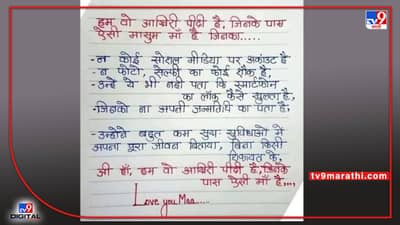 TV9
हम वो आखिरी पीढ़ी है, जिनके पास
ऐसी मासूम माँ है जिनका.....
-ना कोई सोशल मीडिया पर अकाउंट है
-न फोटो, सेल्फी का कोई शौक है,
-उन्हें ये भी नही पता कि स्मार्टफोन
का लॉक कैसे खुलता है,
-जिनको ना अपनी जन्मतिथि का पता है,
-उन्होंने बहुत कम सुख सुविधाओं में
अपना पूरा जीवन बिताया, बिना किसी
शिकायत के,
जी हाँ, हम वो आखिरी पीढ़ी है, जिनके
पास ऐसी माँ है....
Love you Maa.....
TV9
DIGITAL
tv9marathi.com